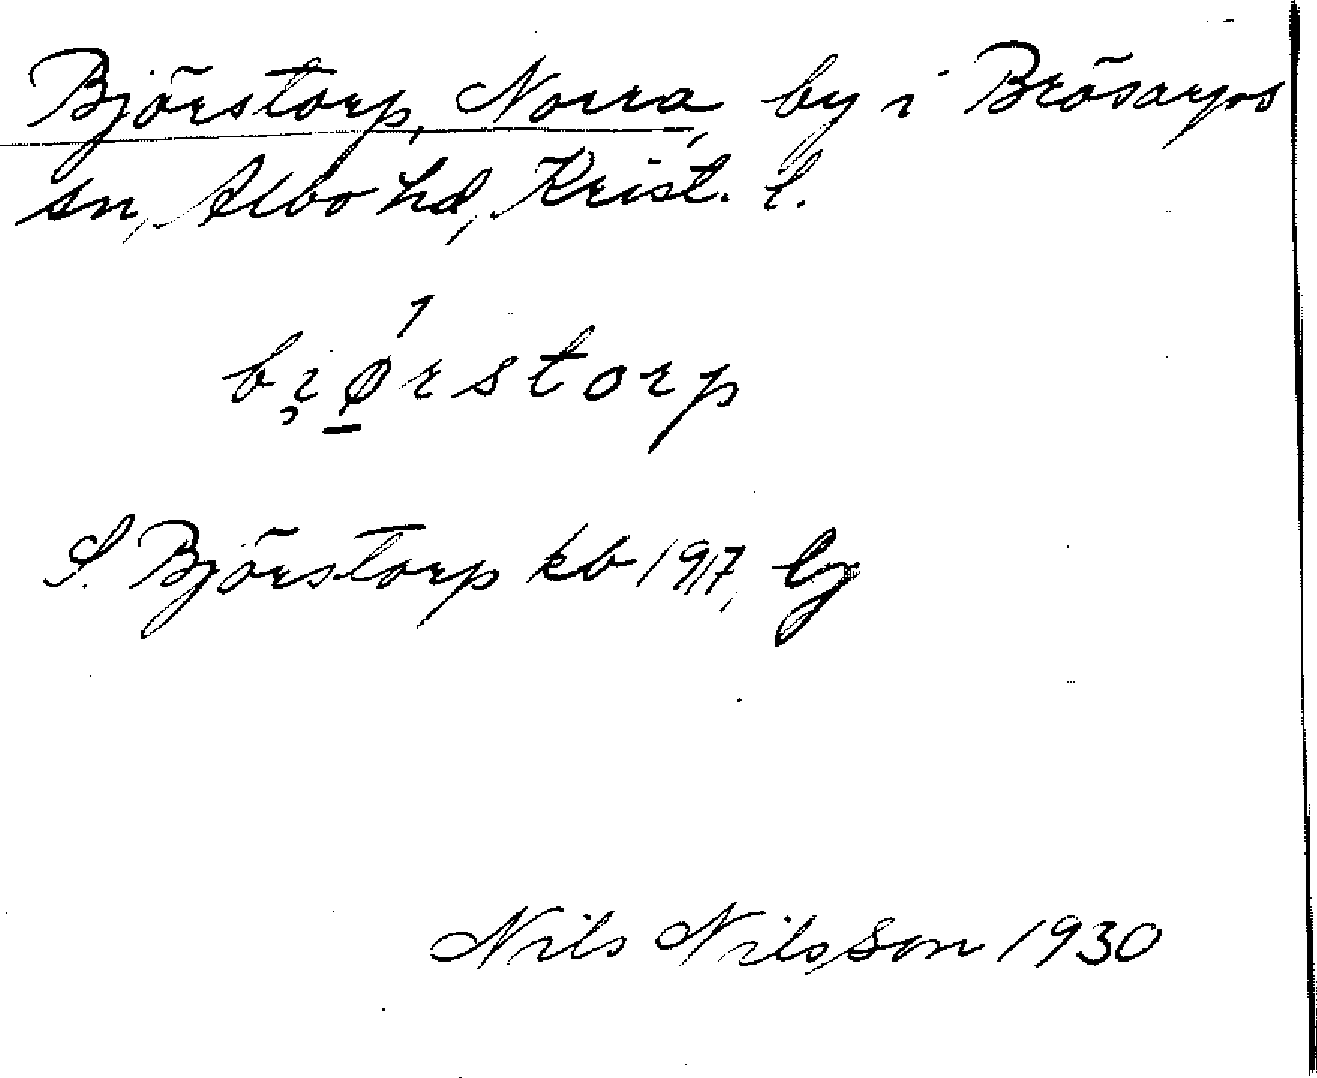 Björstorp, Norra, by i Brösarps
sn, Albo hd, Krist. l.
bi̯ǿ̱rstorp
S. Björstorp kb 1917,
Nils Nilsson 1930